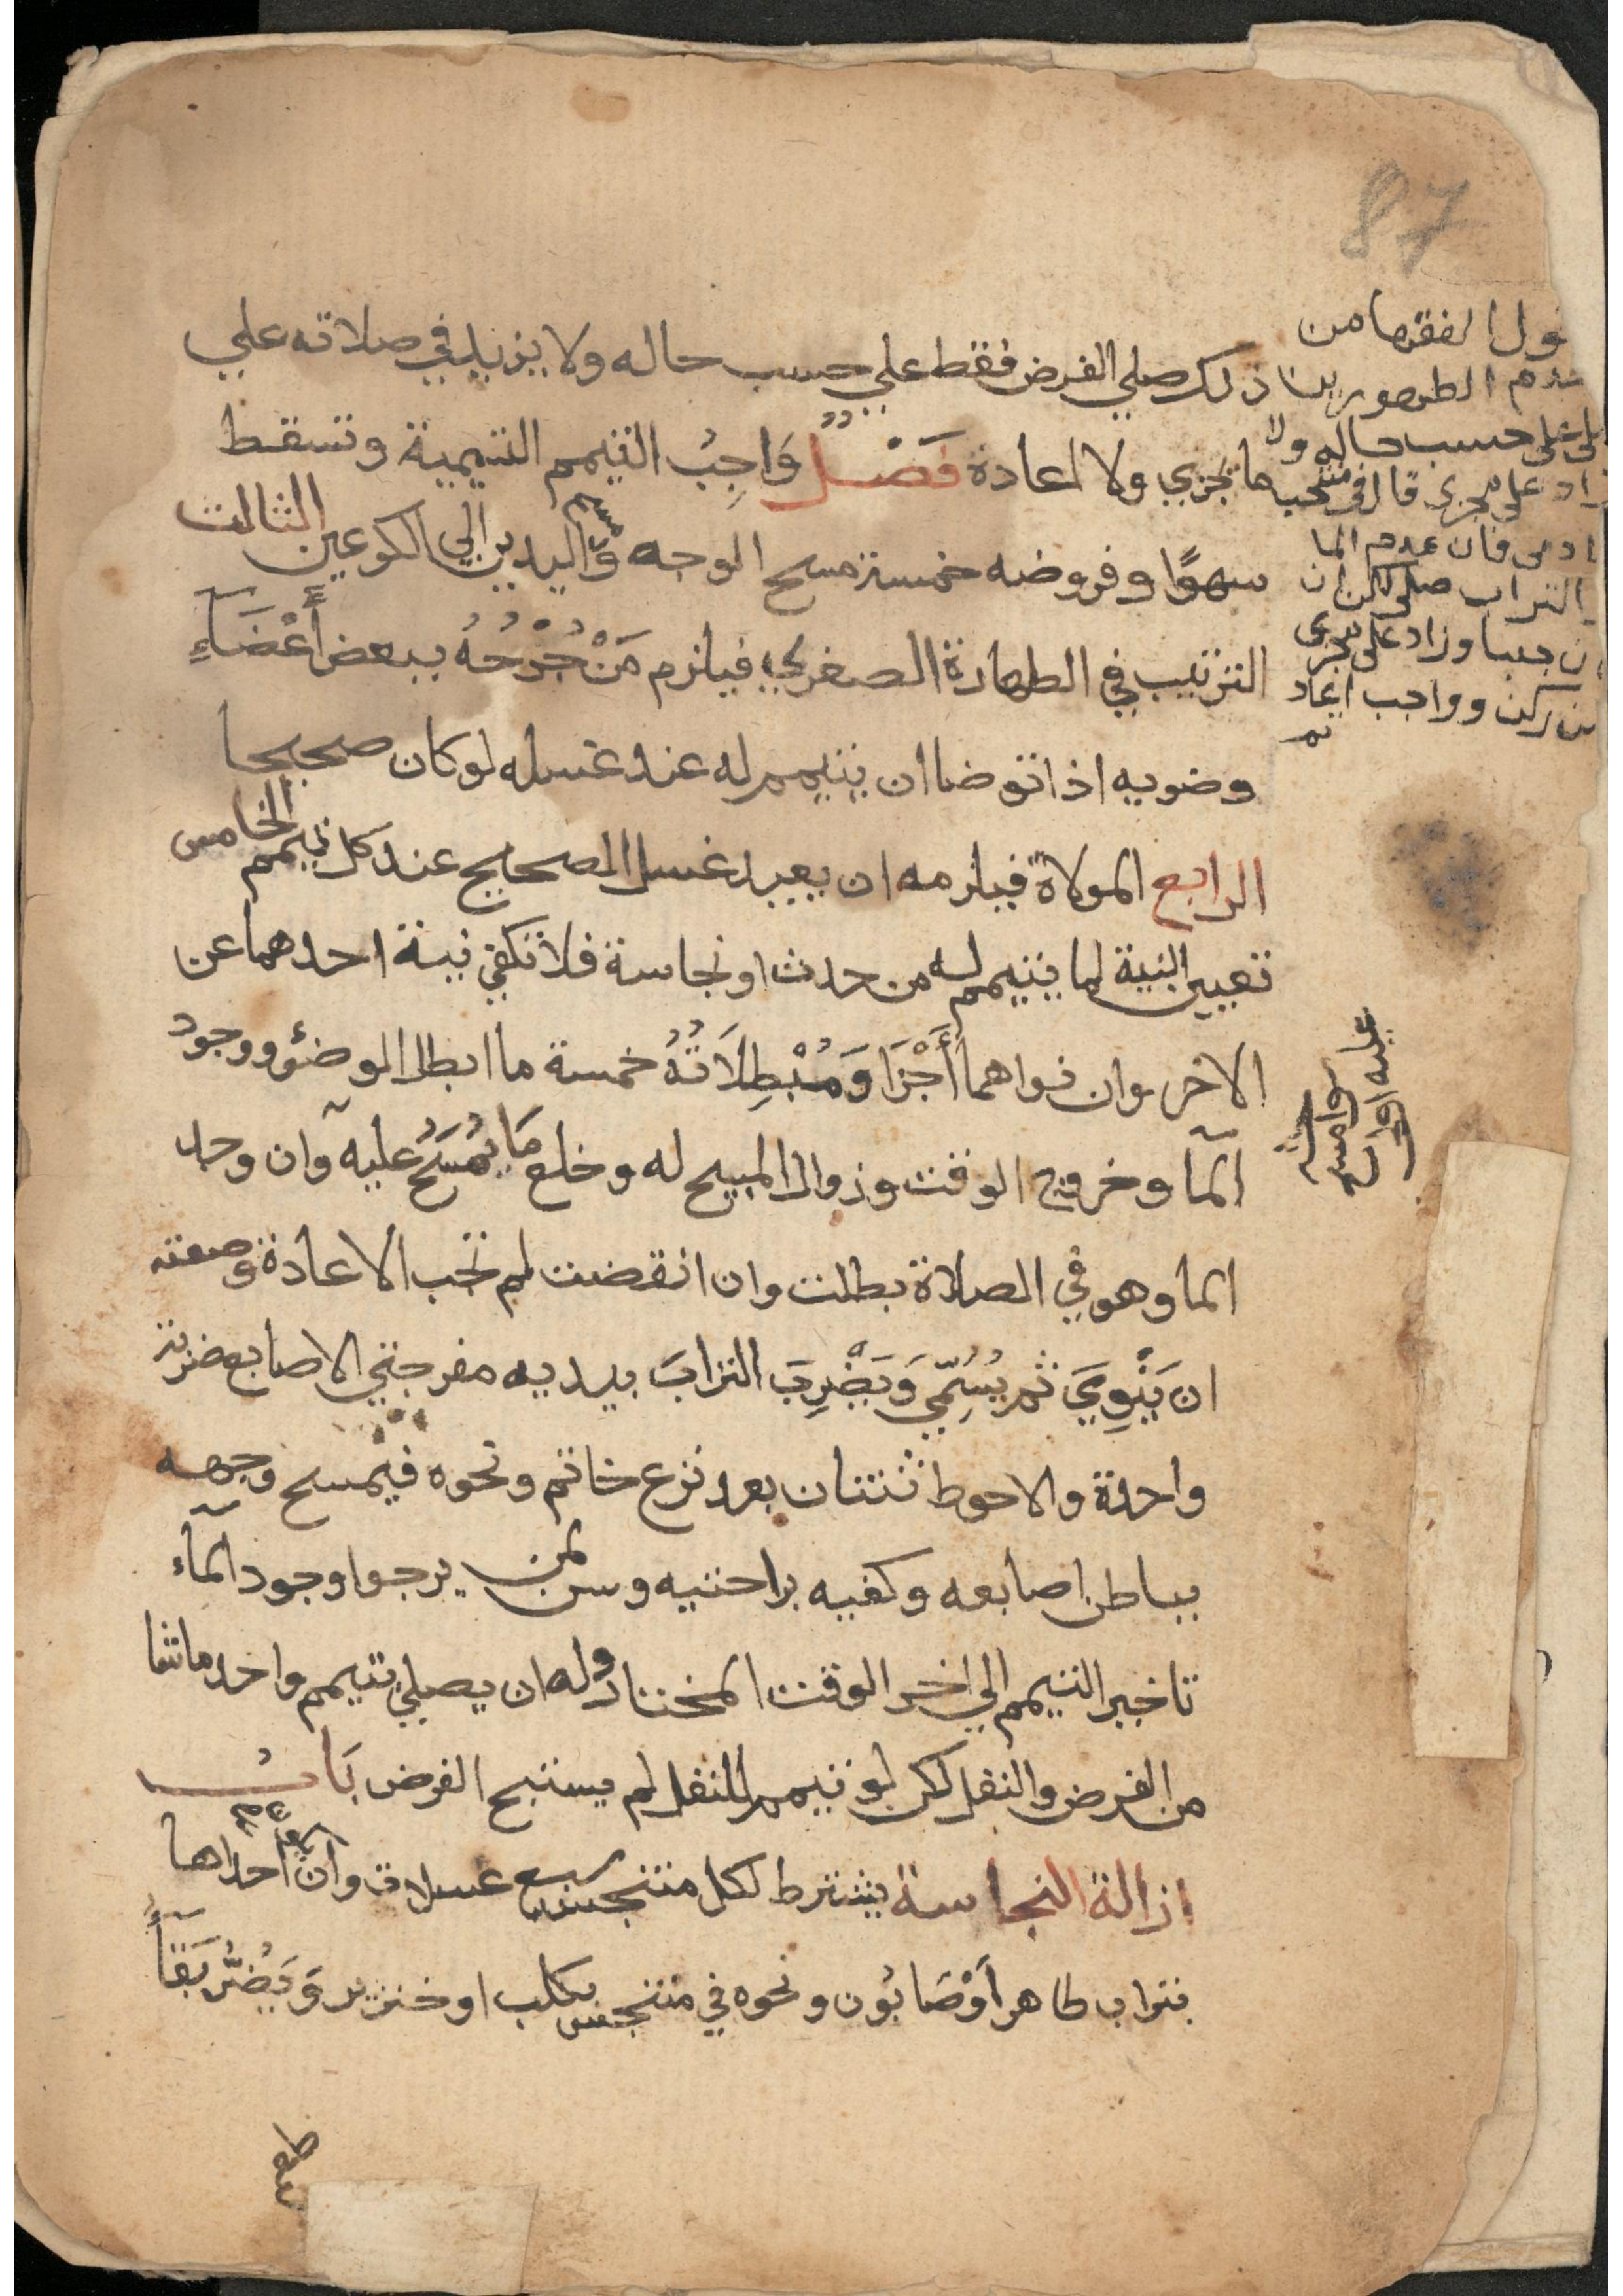 87
ذلك صلي الفرض فقط علي حسب حاله ولا يزيد في صلاته علي
ما يجزي ولا اعادة فَصْلٌ وَاجِبُ التيمم التسمية وتسقط
سهوًا وفروضه خمسة مسح الوجه ومسح اليدين الي الكوعين الثالث
الترتيب في الطهارة الصغري فيلزم مَنْ جُرْحُهُ ببعض أَعْضَآءِ
وضويه اذا توضا ان يتيمم له عند غسله لو كان صحيحا
الرابع المولاة فيلزمه ان يعيد غسل الصحيح عند كل تيمم الخامس
تعيين النية لما يتيمم له من حدث او نجاسة فلا تكفي نية احدهما عن
الاخر وان نواهما أَجْزَا وَمُبْطِلَاتُهُ خمسة ما ابطل الوضؤ ووجود
المآ وخروج الوقت وزوال المبيح له وخلع مَا يُمْسَحُ عليه وان وجد
الما وهو في الصلاة بطلت وان انقضت لم تجب الاعادة وصفته
ان يَنْوِيَ ثم يُسَمِّي وَيَضْرِبَ الترابَ بيديه مفرجتي الاصابع ضربة
واحدة والاحوط ثنتان بعد نزع خاتم ونحوه فيمسح وجهه
بباطن اصابعه وكفيه براحتيه وسن لمن يرجوا وجود المآء
تاخير التيمم الي اخر الوقت المختار وله ان يصلي بتيمم واحد ما شا
من الفرض والنفل لكن لو تيمم للنفل لم يستبح الفرض بَابُ
ازالة النجاسة يشترط لكل متنجس سبع غسلات وان احداها
بتراب طاهر أَوْ صَابُون ونحوه في متنجس بكلب او خنزير وَيَضُرُّ بَقَآءُ
قول الفقها من
عدم الطهورين
على حسب حاله ولا
زاد على مجزي قال في منتخب
فان عدم الما
والتراب صلى لكن ان
جنبا وزاد على مجزي
من ركن وواجب اعاد
عليه اولا